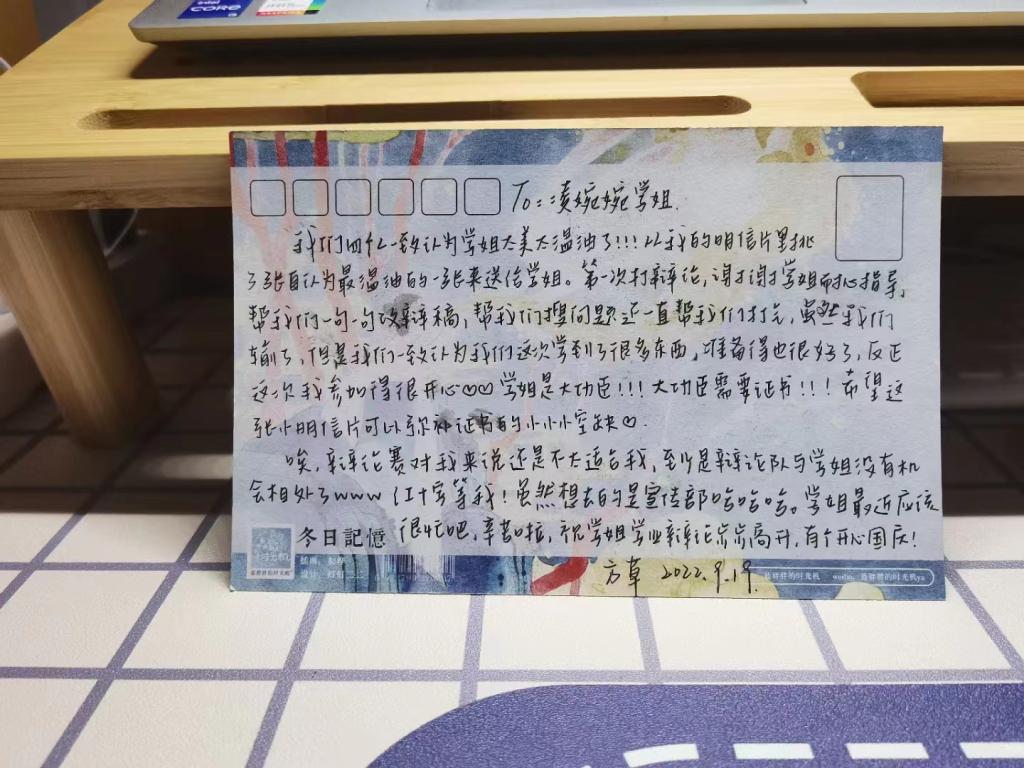 intel
CORE
To：凌婉婉学姐.
我们四个一致认为学姐太美太温油了!!!从我的明信片里挑
了张自认为最温油的一张来送给学姐。第一次打辩论，谢谢学姐耐心指导，
帮我们一句一句改辩稿，帮我们搜问题还一直帮我们打光，虽然我们
输了，但是我们一致认为我们这次学到了很多东西，准备得也很好了，反正
这次我参加得很开心♡♡学姐是大功臣!!!大功臣需要证书!!!希望这
张小明信片可以弥补证书的小小小空缺♡.
唉，辩论赛对我来说还是不太适合我，至少是辩论队与学姐没有机
会相处了www 红十字等我！虽然想去的是宣传部哈哈哈。学姐最近应该
很忙吧，辛苦啦，祝学姐学业辩论步步高升，有个开心国庆！
冬日記憶
方草 2022.9.19.